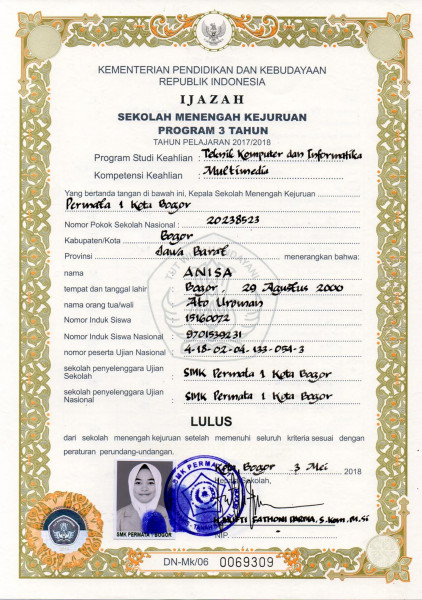 KEMENTERIAN PENDIDIKAN DAN KEBUDAYAAN
REPUBLIK INDONESIA
IJAZAH
SEKOLAH MENENGAH KEJURUAN
PROGRAM 3 TAHUN
TAHUN PELAJARAN 2017/2018
Program Studi Keahlian : Teknik Komputer dan Informatika
Kompetensi Keahlian : Multimedia
Yang bertanda tangan di bawah ini, Kepala Sekolah Menengah Kejuruan
Permata 1 Kota Bogor
Nomor Pokok Sekolah Nasional : 20238523
Kabupaten/Kota Bogor
Provinsi Jawa Barat menerangkan bahwa:
nama ANISA
tempat dan tanggal lahir Bogor, 29 Agustus 2000
nama orang tua/wali Ato Uroman
Nomor Induk Siswa 15160072
Nomor Induk Siswa Nasional : 9701539231
nomor peserta Ujian Nasional : 4-18-02-04-133-054-3
sekolah penyelenggara Ujian
Sekolah : SMK Permata 1 Kota Bogor
sekolah penyelenggara Ujian
Nasional : SMK Permata 1 Kota Bogor
LULUS
dari sekolah menengah kejuruan setelah memenuhi seluruh kriteria sesuai dengan
peraturan perundang-undangan.
Kota Bogor 3 Mei 2018
Kepala Sekolah,
SMK PERMATA
FATHONI S.Kom, M.Si
NIP.
SMK PERMATA 1 BOGOR
DN-Mk/06 0069309